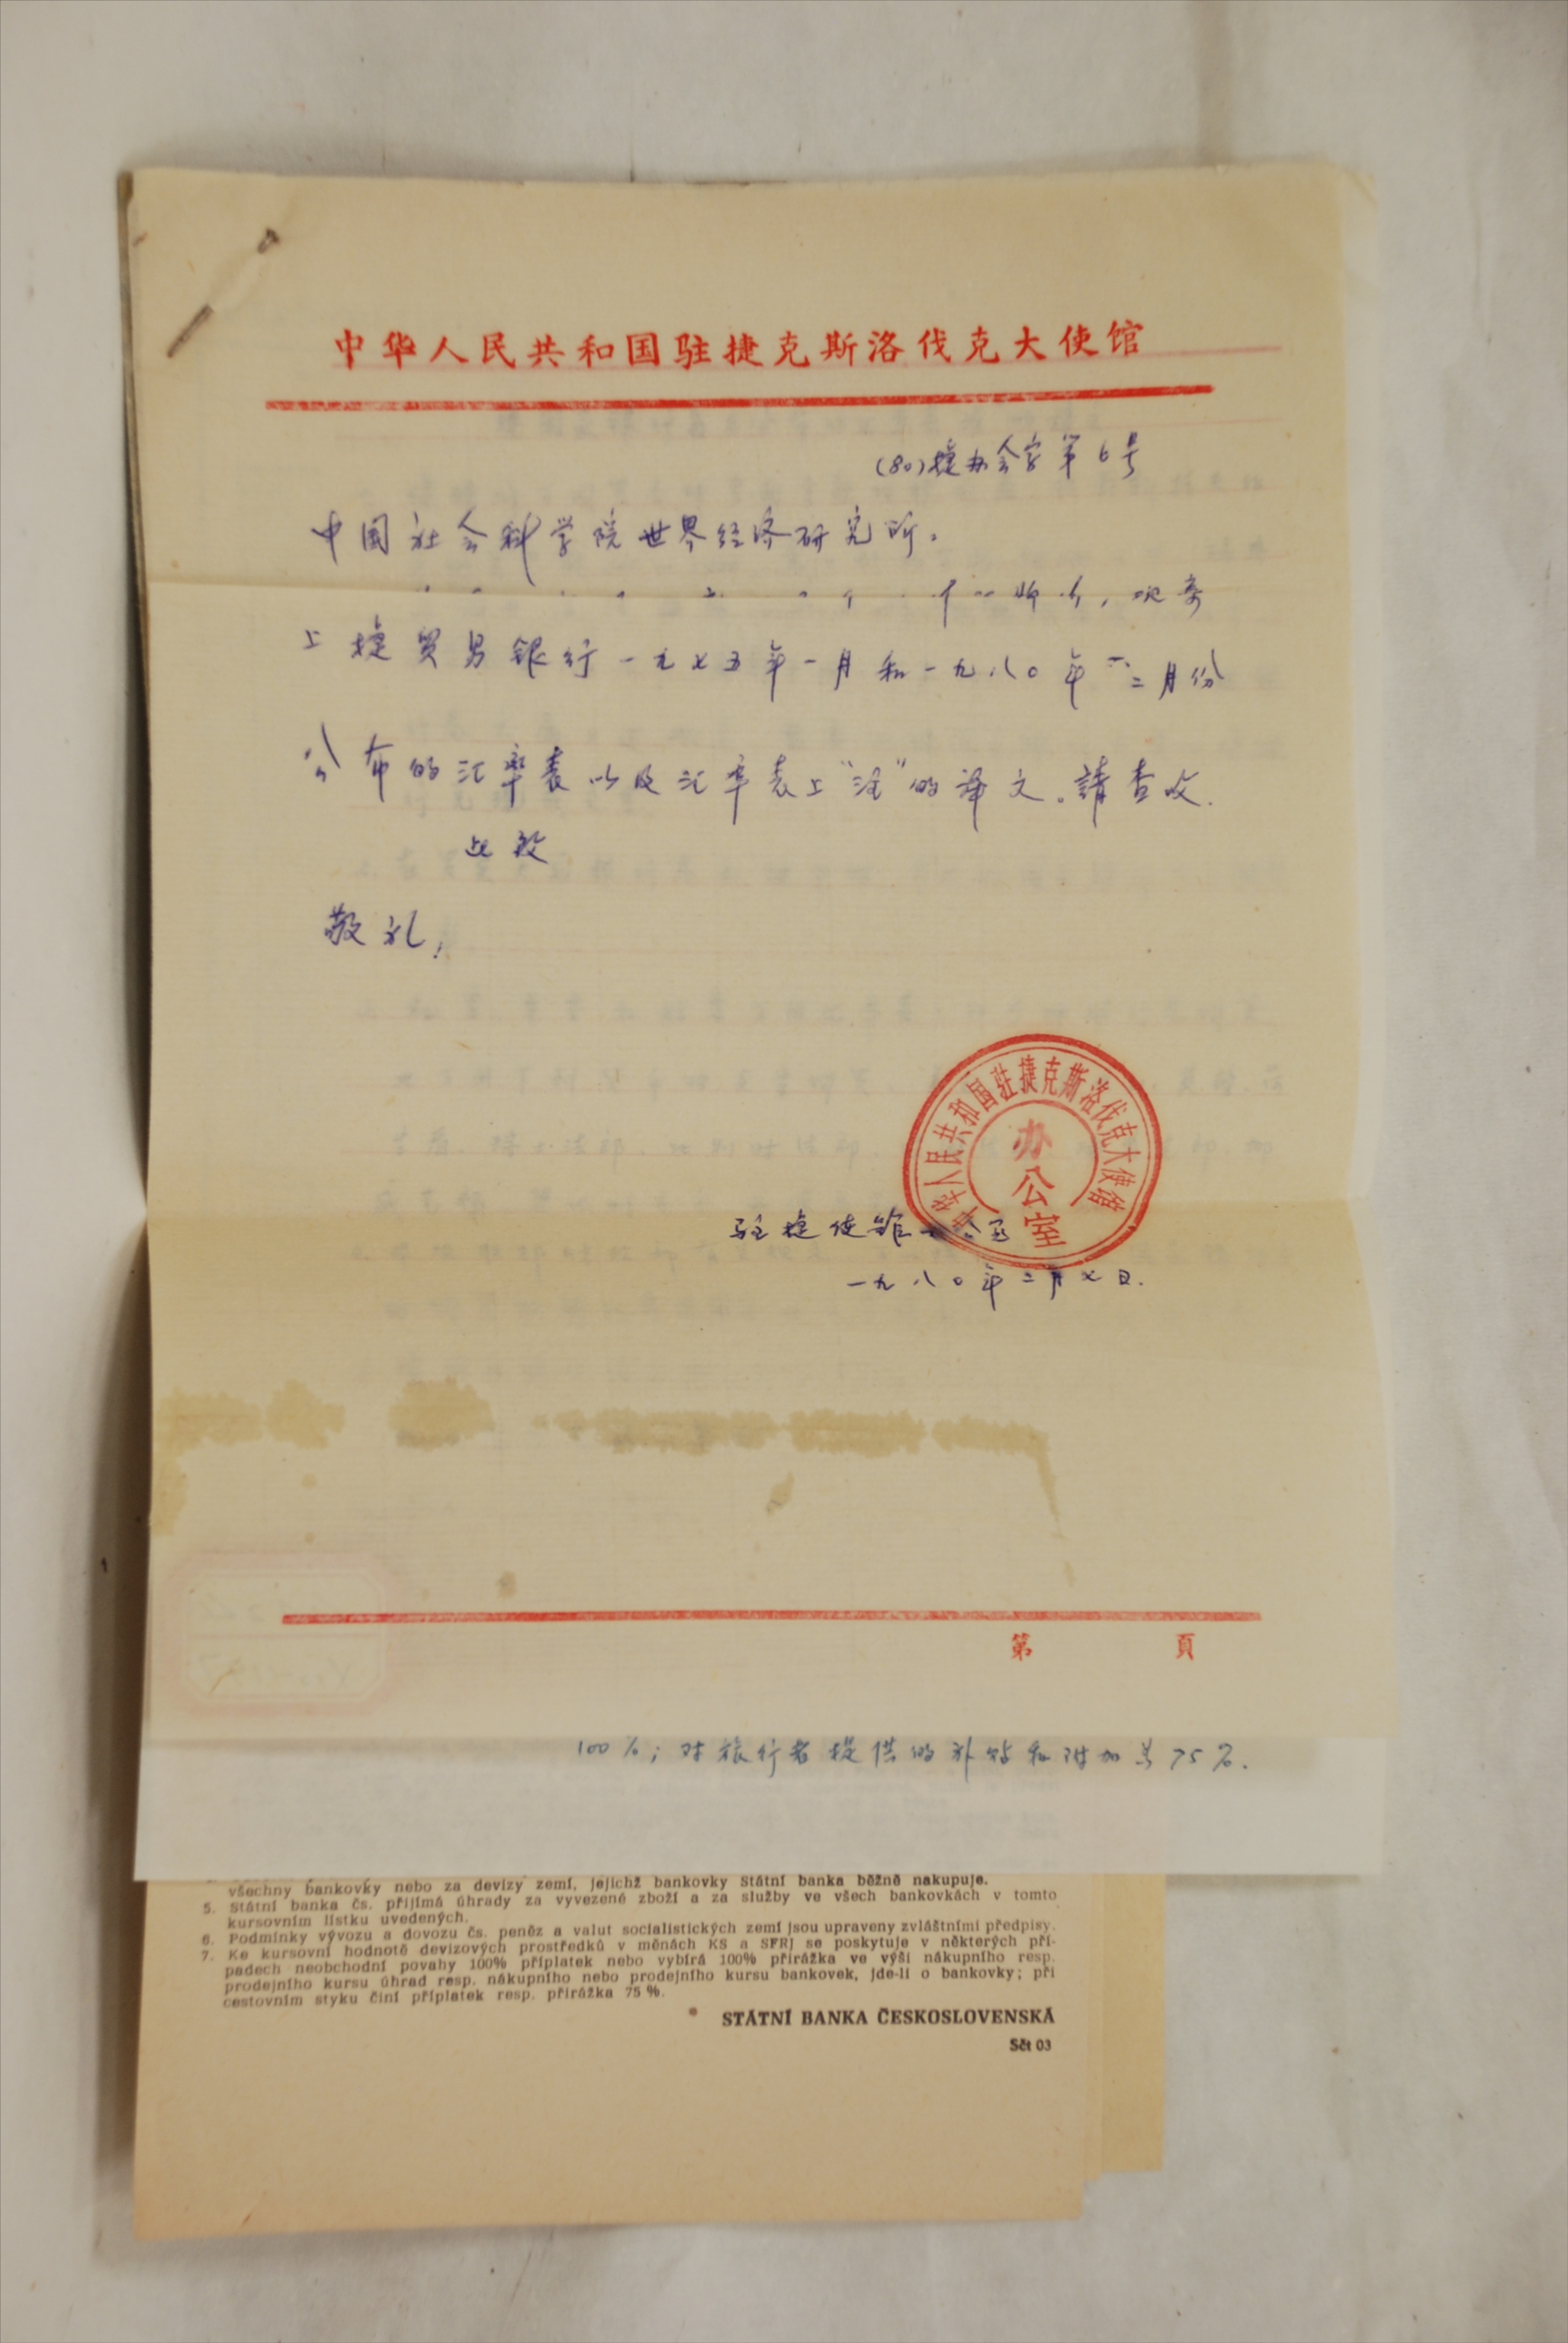 中华人民共和国驻捷克斯洛伐克大使馆
(80)捷办会字第6号
中国社会科学院世界经济研究所：
现寄
上捷贸易银行一九七五年一月和一九八〇年一、二月份
公布的汇率表以及汇率表上“注”的译文。請查收.
此致
敬礼！
中华人民共和国驻捷克斯洛伐克大使馆
办公室
驻捷使馆办公室
一九八〇年二月七日.
第 頁
100%；对旅行者提供的补贴和附加为75%.
všechny bankovky nebo za devizy zemí, jejichž bankovky Státní banka běžně nakupuje.
5. Státní banka čs. přijímá úhrady za vyvezené zboží a za služby ve všech bankovkách v tomto
kursovním lístku uvedených.
6. Podmínky vývozu a dovozu čs. peněz a valut socialistických zemí jsou upraveny zvláštními předpisy.
7. Ke kursovní hodnotě devizových prostředků v měnách KS a SFRJ se poskytuje v některých pří-
padech neobchodní povahy 100% příplatek nebo vybírá 100% přirážka ve výši nákupního resp.
prodejního kursu úhrad resp. nákupního nebo prodejního kursu bankovek, jde-li o bankovky; při
cestovním styku činí příplatek resp. přirážka 75 %.
STÁTNÍ BANKA ČESKOSLOVENSKÁ
Sčt 03